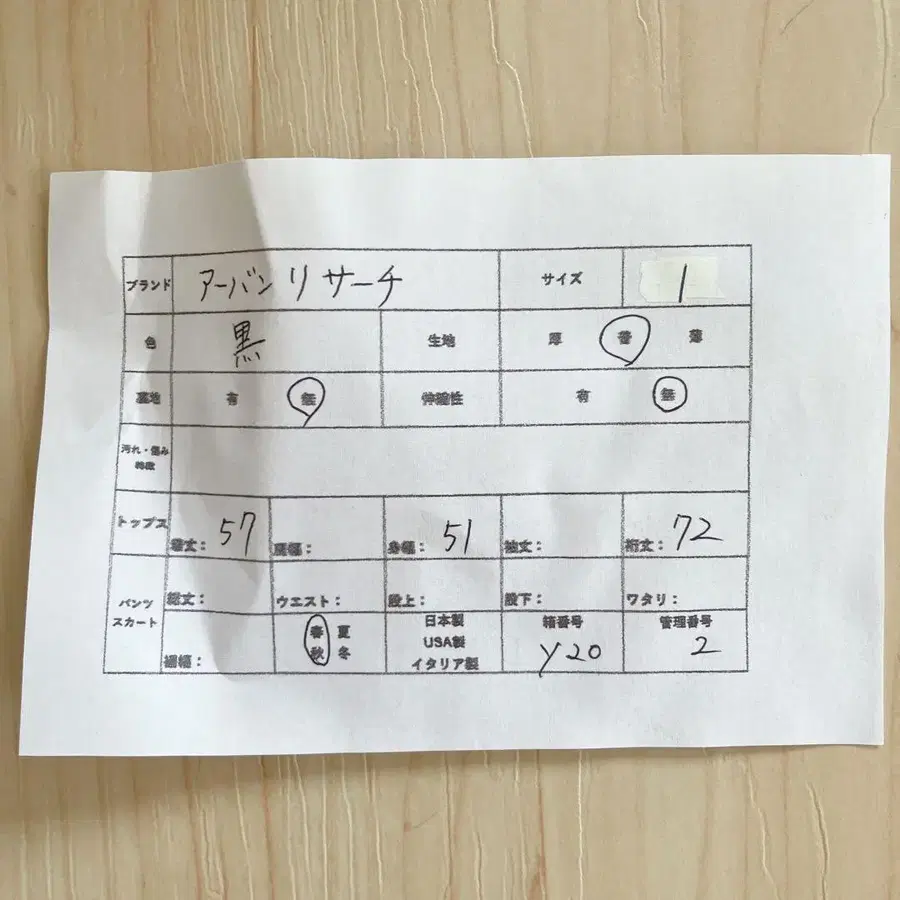 ブランド アーバンリサーチ サイズ 1
色 黒 生地 厚 普 薄
裏地 有 無 伸縮性 有 無
汚れ・傷み
トップス 着丈: 57 肩幅: 身幅: 51 袖丈: 裄丈: 72
パンツ スカート 総丈: ウエスト: 股上: 股下: ワタリ:
裾幅: 春 夏 秋 冬 日本製 USA製 イタリア製 箱番号 Y20 管理番号 2